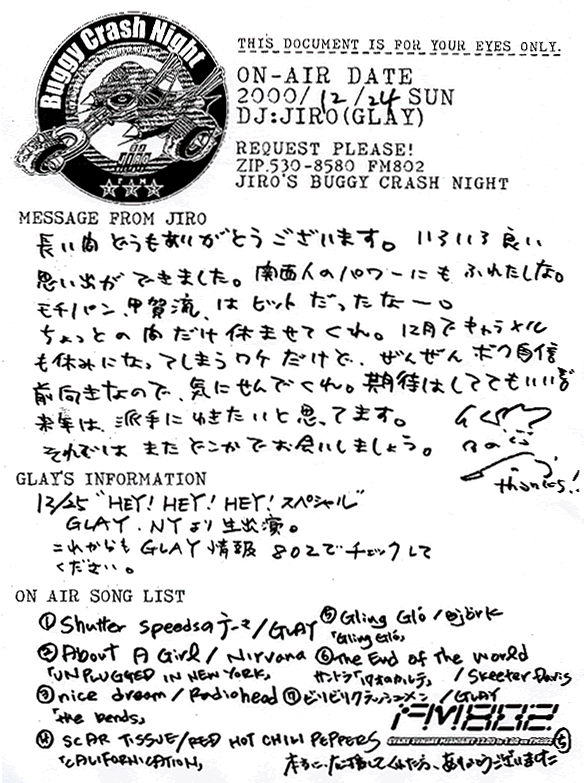 Buggy Crash Night
JIRO
FAMA
THIS DOCUMENT IS FOR YOUR EYES ONLY.
ON-AIR DATE
2000/12/24 SUN
DJ:JIRO(GLAY)
REQUEST PLEASE!
ZIP.530-8580 FM802
JIRO'S BUGGY CRASH NIGHT
MESSAGE FROM JIRO
長い間どうもありがとうございます。いろいろ良い
思い出ができました。関西人のパワーにもふれたしな。
モチノパン、甲賀流、はヒットだったなー。
ちょっとの間だけ休ませてくれ。12月でキャラメル
も休みになってしまうワケだけど、ぜんぜんボク自信
前向きなので、気にせんでくれ。期待はしててもいいぞ
来年は、派手にいきたいと思ってます。
それではまたどこかでお会いしましょう。
thanks!!
GLAY'S INFORMATION
12/25 "HEY! HEY! HEY! スペシャル"
GLAY.NYより生出演。
これからもGLAY情報802でチェックして
ください。
ON AIR SONG LIST
①Shutter speedsのテーマ/GLAY
②About A Girl/Nirvana
「UNPLUGGED IN NEW YORK」
③nice dream/Radiohead
「the bends」
④SCAR TISSUE/RED HOT CHILI PEPPERS
「CALIFORNICATION」
⑤Gling Gló/Björk
「Gling Gló」
⑥The End of The World
サントラ「17才のカルテ」/Skeeter Davis
⑦ビリビリクラッシュメン/GLAY
FM802
本当に応援してくれた方、ありがとうございました